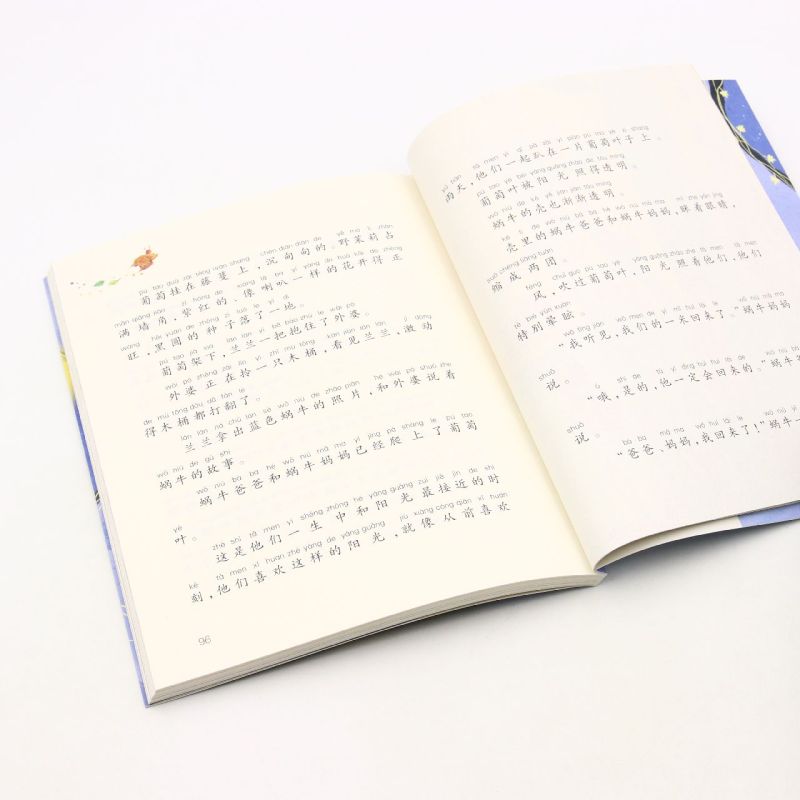 pú tao guà zài téng wàn shàng chén diàn diàn de yě mò lì zhàn
葡萄挂在藤蔓上，沉甸甸的。野茉莉占
mǎn qiáng jiǎo zǐ hóng de xiàng lǎ ba yí yàng de huā kāi de zhèng
满墙角，紫红的、像喇叭一样的花开得正
wàng hēi yuán de zhǒng zi luò le yí dì
旺，黑圆的种子落了一地。
pú tao jià xià lán lan yì bǎ bào zhù le wài pó
葡萄架下，兰兰一把抱住了外婆。
wài pó zhèng zài līn yì zhī mù tǒng kàn jiàn lán lan jī dòng
外婆正在拎一只木桶，看见兰兰，激动
de mù tǒng dōu dǎ fān le
得木桶都打翻了。
lán lan ná chū lán sè wō niú de zhào piàn hé wài pó shuō zhe
兰兰拿出蓝色蜗牛的照片，和外婆说着
wō niú de gù shi
蜗牛的故事。
wō niú bà ba hé wō niú mā ma yǐ jīng pá shàng le pú tao
蜗牛爸爸和蜗牛妈妈已经爬上了葡萄
yè
叶。
zhè shì tā men yì shēng zhōng hé yáng guāng zuì jiē jìn de shí
这是他们一生中和阳光最接近的时
kè tā men xǐ huan zhè yàng de yáng guāng jiù xiàng cóng qián xǐ huan
刻，他们喜欢这样的阳光，就像从前喜欢
96
yǔ tiān tā men yì qǐ pā zài yí piàn pú tao yè zi shang
雨天，他们一起趴在一片葡萄叶子上。
pú tao yè bèi yáng guāng zhào de tòu míng
葡萄叶被阳光照得透明。
wō niú de ké yě jiàn jiàn tòu míng
蜗牛的壳也渐渐透明。
ké li de wō niú bà ba hé wō niú mā ma mī zhe yǎn jing
壳里的蜗牛爸爸和蜗牛妈妈，眯着眼睛，
suō chéng liǎng tuán
缩成两团。
fēng chuī guò pú tao yè yáng guāng zhào zhe tā men tā men
风，吹过葡萄叶，阳光照着他们，他们
tè bié yūn xuàn
特别晕眩。
wǒ tīng jiàn wǒ men de yì mǐ huí lái le wō niú mā ma
“我听见，我们的一米回来了。”蜗牛妈妈
shuō
说。
ò shì de tā yí dìng huì huí lái de wō niú bà
“哦，是的，他一定会回来的。”蜗牛爸
shuō
说。
bà ba mā ma wǒ huí lái le wō niú yì
“爸爸、妈妈，我回来了！”蜗牛一